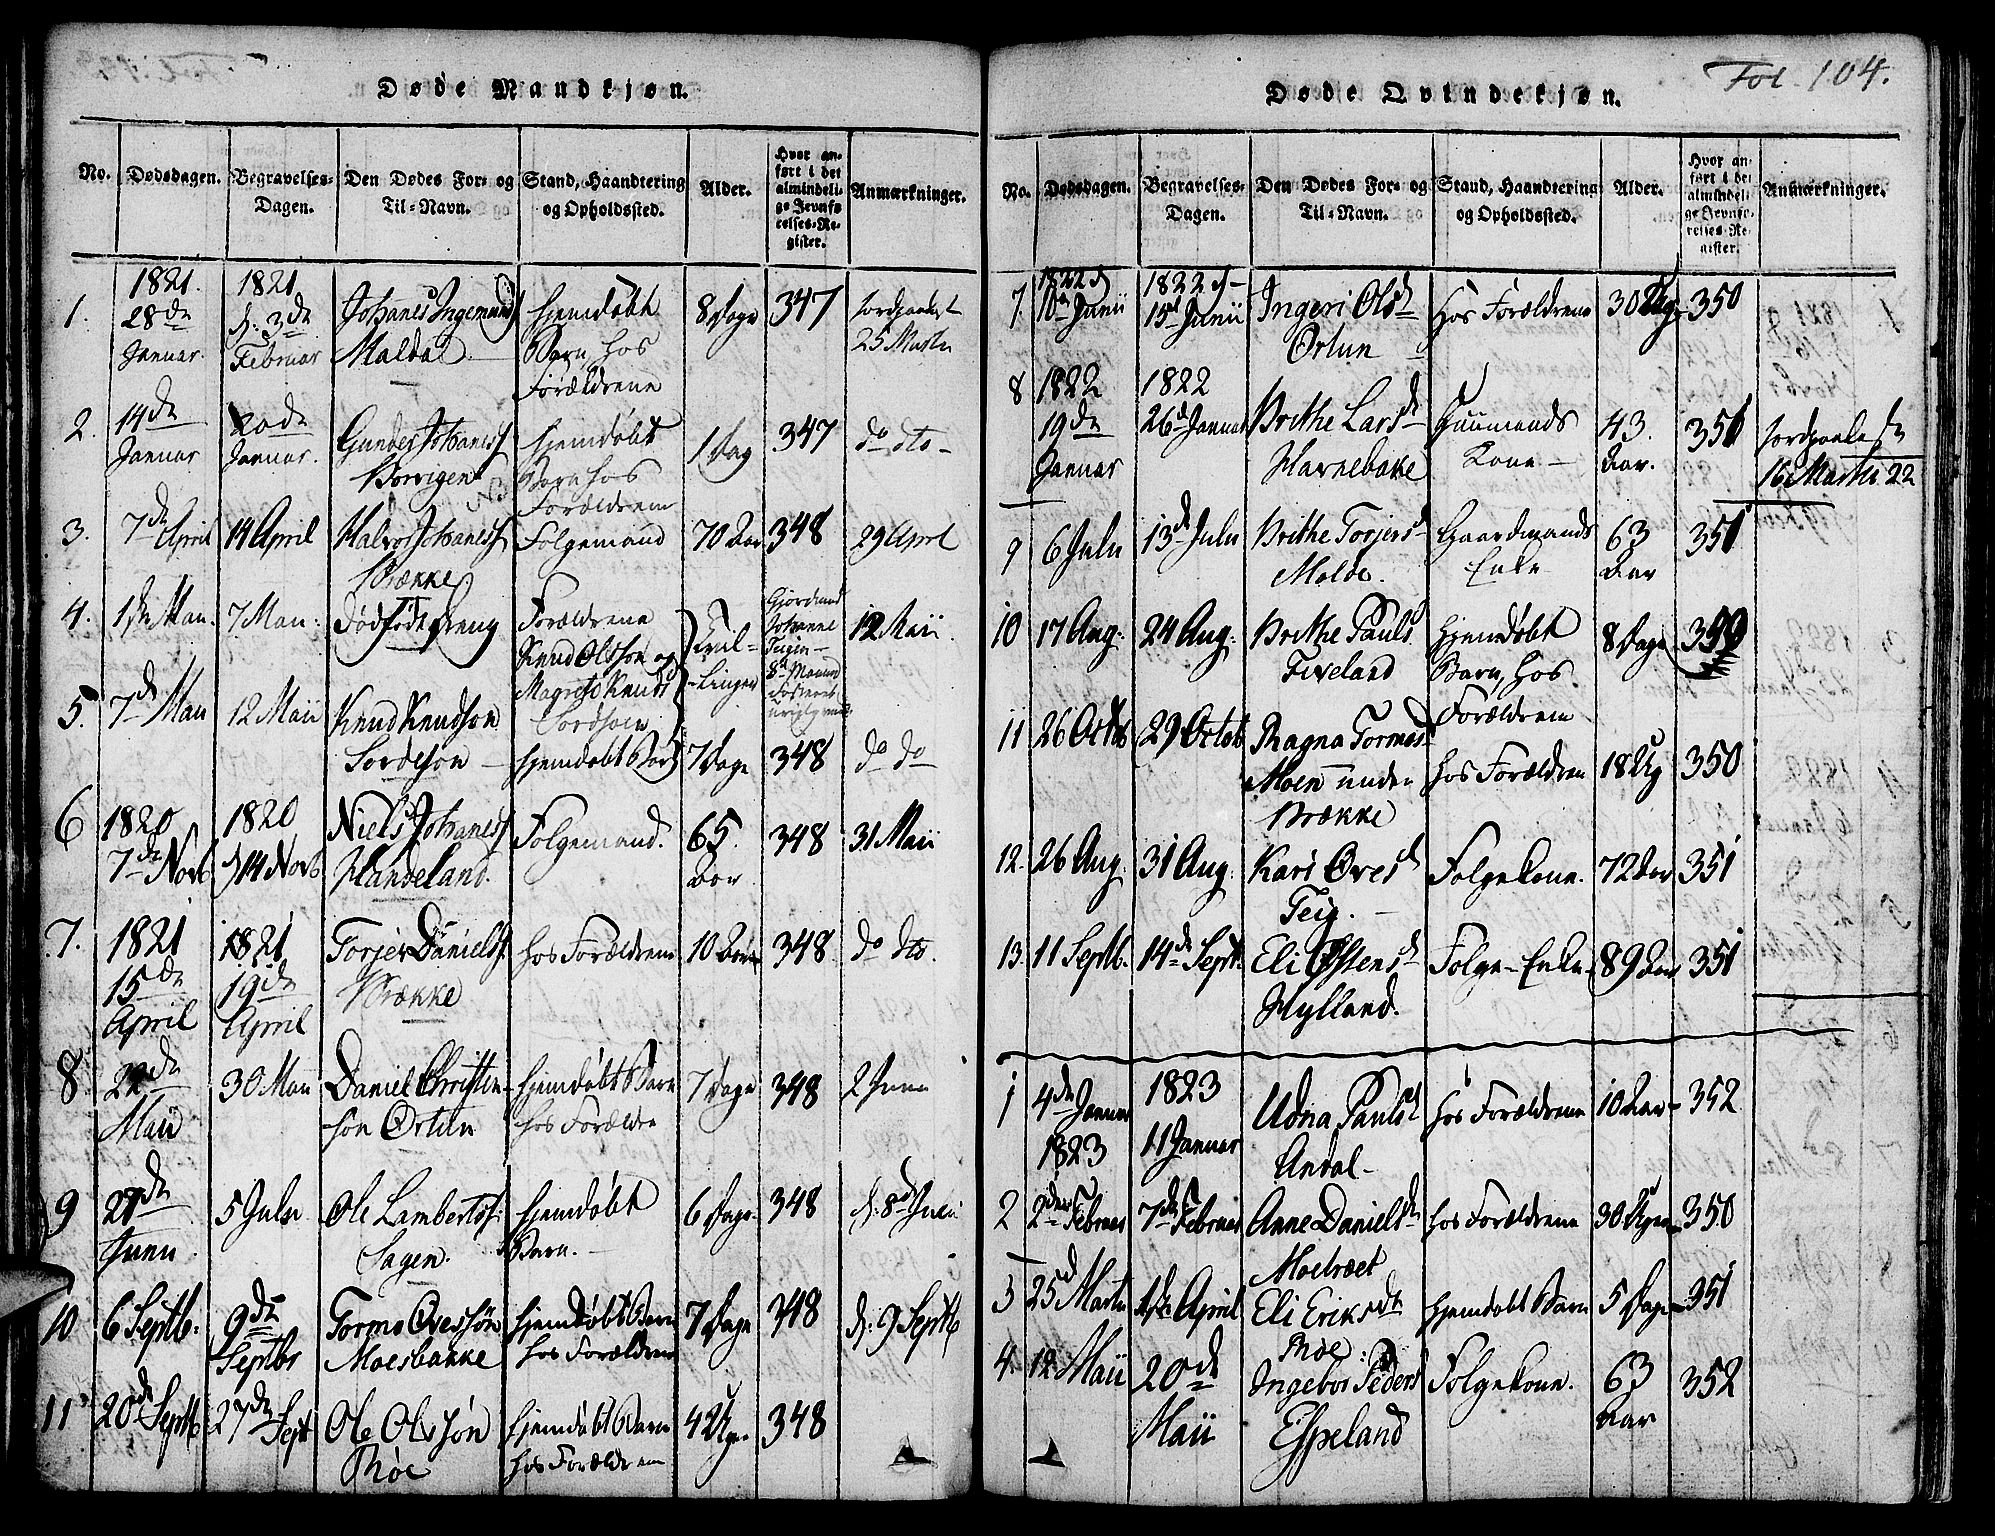 Døde Mandkjøn.
No. Dødsdagen. Begravelses-Dagen. Den Dødes For- og Til-Navn. Stand, Haandtering og Opholdssted. Alder. Hvor anført i det almindelige Jevnførelses-Register. Anmærkninger.
1. 1821. 28de Januar. 1821 d: 3de Februar Johanes Ingemunds Maldal Hjemdøbt Barn, hos Forældrene 8 Dage 347 25 Martii
2. 14de Januar 20de Januar. Johaness Hjemdøbt Barn hos Forældrene 1 Dag 347 do dto
3. 7de April 14 April Halvor Johaness Brække Folgemand 70 Aar 348 29 April
4. 1ste Maii. 7 Maii: Dødfødt Dreng Forældrene Knud Olsson og Magrete Knuds Tvillinger 12 Maii
5. 7de Maii 12 Maii Knud Knudson Hjemdøbt Barn 7 Dage 348 do do
6 1820 7de Novb 1820 d 14 Novb Niels Johaness Handeland. Folgemand. 65. Aar 348 31 Maii
7. 1821 15de April 1821 19de April Torjer Daniels. Brække hos Forældrene 10 Aar 348 do dto.
8. 22de Maii 30 Maii Daniel Christenson Ørtun Hjemdøbt Barn hos Forældre 7 Dage 348 2 Junii
9 27de Junii 5 Julii Ole Lamberts. Sagen. Hjemdøbt Barn. 6 Dage 348 d: 8de Julii
10 6 Septb. 9de Septbr Tormo Ovessøn Moesbakke Hjemdøbt Barn hos Forældrene 7 Dage 348 d: 9 Septb
11 20de Septb 27de Sept Ole Olssøn Røe Hjemdøbt Barn hos Forældrene 4 Uger 348
Fol. 104.
Døde Qvindekjøn.
No. Dødsdagen. Begravelses-Dagen. Den Dødes For- og Til-Navn. Stand, Haandtering og Opholdssted. Alder. Hvor anført i det almindelige Jevnførelses-Register. Anmærkninger.
7. 1822 10de Junii 1822 15de Junii Ingeri Olsd Ørtun hos Forældrene 30 Uger 350
8 1822 19de Januar 1822 26de Januar Brithe Larsd Havnebake Huusmands Kone 43. Aar. 351 16 Martii 22
9 6 Julii 13de Julii Brithe Torjersd Molde. Gaardmands Enke 63 Aar 351
10 17 Aug: 24 Aug: Brithe Pauls Fiveland Hjemdøbt Barn, hos Forældrene 8 Dage 350
11 26 Octob 29 Octob Ragna Tormosd Moen under Brække hos Forældrene 18 Ug 350
12. 26 Aug. 31 Aug. Kari Ovesd Teig. Folgekone. 72 Aar 351
13. 11 Septb. 14de Sept. Eli Østensd Hylland. Folge-Enke 89 Aar 351
1 4de Januar 1823 1823 11 Januar Udna Paulsd Andal hos Forældrene 10 Aar 352
2 2den Februar 7de Februar Anne Danielsd Moetvæet hos Forældrene 30 Uger 350
3 25d Martii 1ste April Eli Eriksdt Røe. Hjemdøbt Barn 5 Dage 351
4. 12 Maii 20de Maii Ingebor Peders Espeland Folgekone. 63 Aar 352